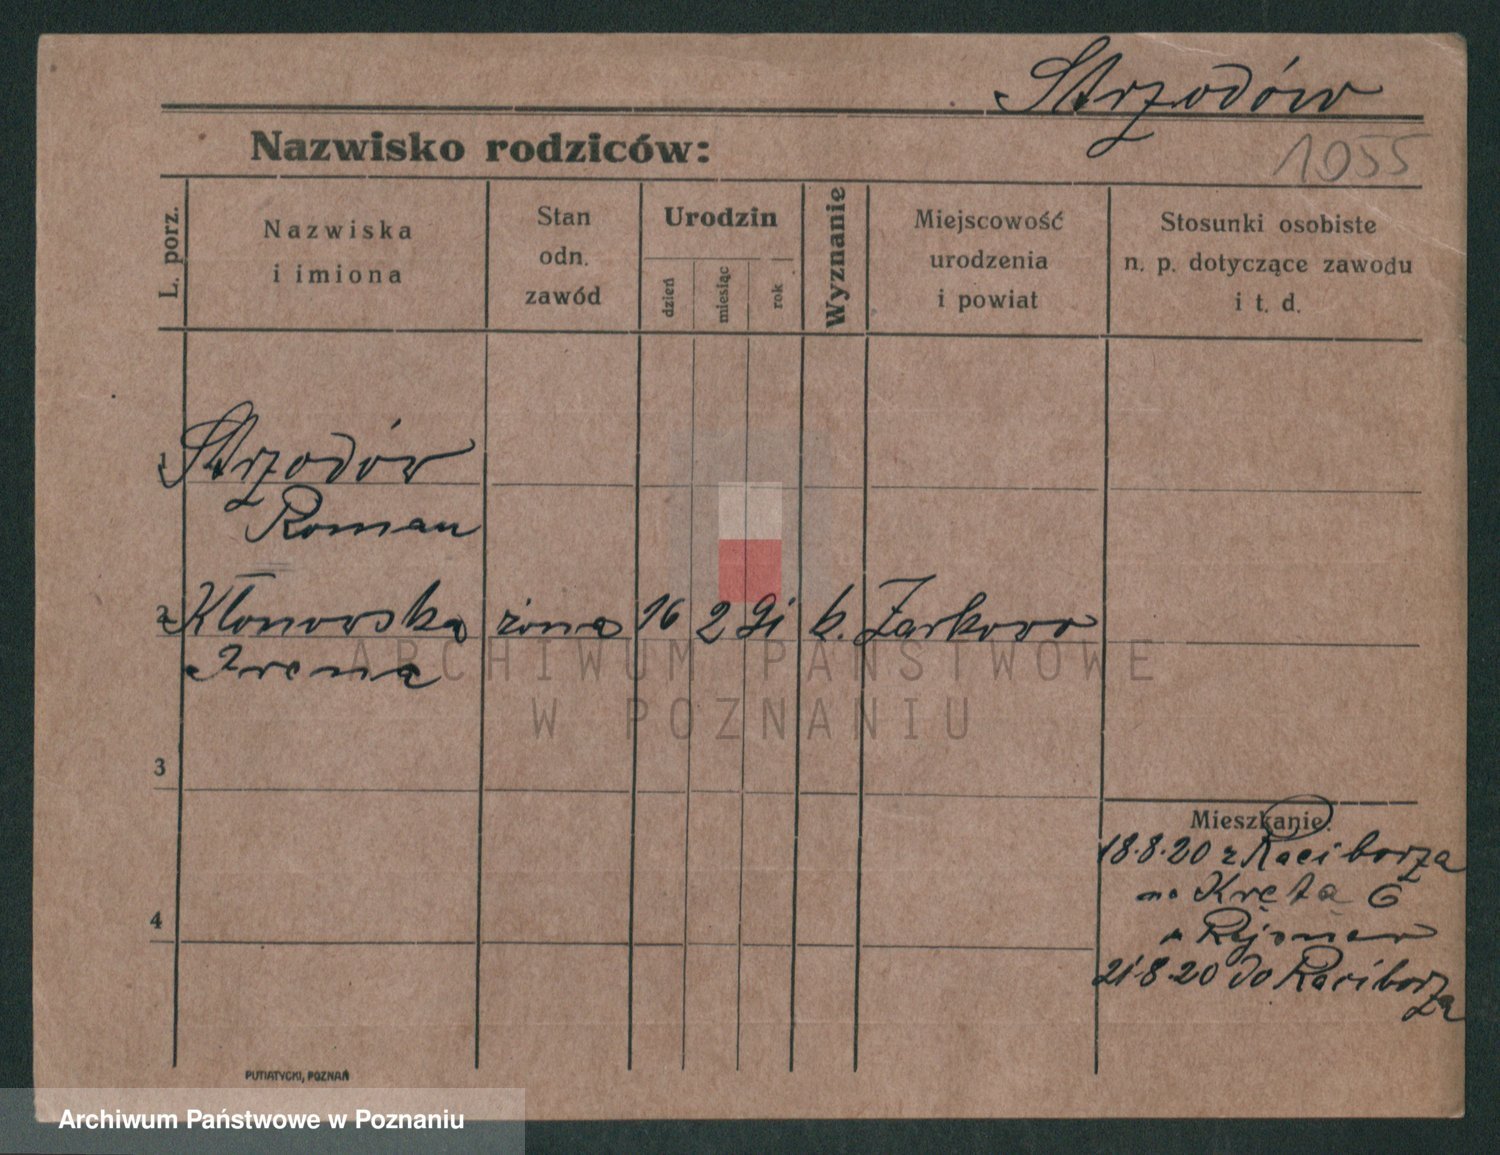 Strzodów
1055
Nazwisko rodziców:
L. porz.
Nazwiska
i imiona
Stan
odn.
zawód
Urodzin
dzień
miesiąc
rok
Wyznanie
Miejscowość
urodzenia
i powiat
Stosunki osobiste
n. p. dotyczące zawodu
i t. d.
1 Strzodów
Roman
2 Kłonowska żona 16 2 91 k. Żarkowo
Irena
ARCHIWUM PAŃSTWOWE
W POZNANIU
3
Mieszkanie:
18.8.20 z Raciborza
na Kręta 6
4
21.8.20 do Raciborza
PUTIATYCKI, POZNAŃ
Archiwum Państwowe w Poznaniu